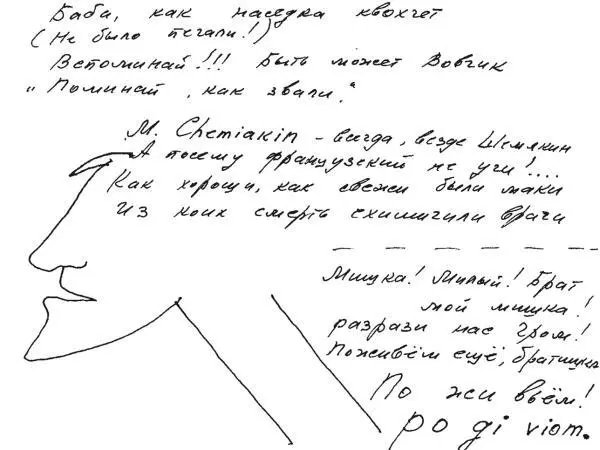 Баба, как наседка квохчет
(Не было печали!)
Вспоминай!!! Быть может Вовчик
„Поминай, как звали."
M. Chemiakin – всегда, везде Шемякин
А посему французский не учи!....
Как хороши, как свежи были маки
Из коих смерть схимичили врачи
Мишка! Милый! Брат
мой мишка!
разрази нас Гром!
Поживём ещё, братишка
По жи вьём!
po gi viom.